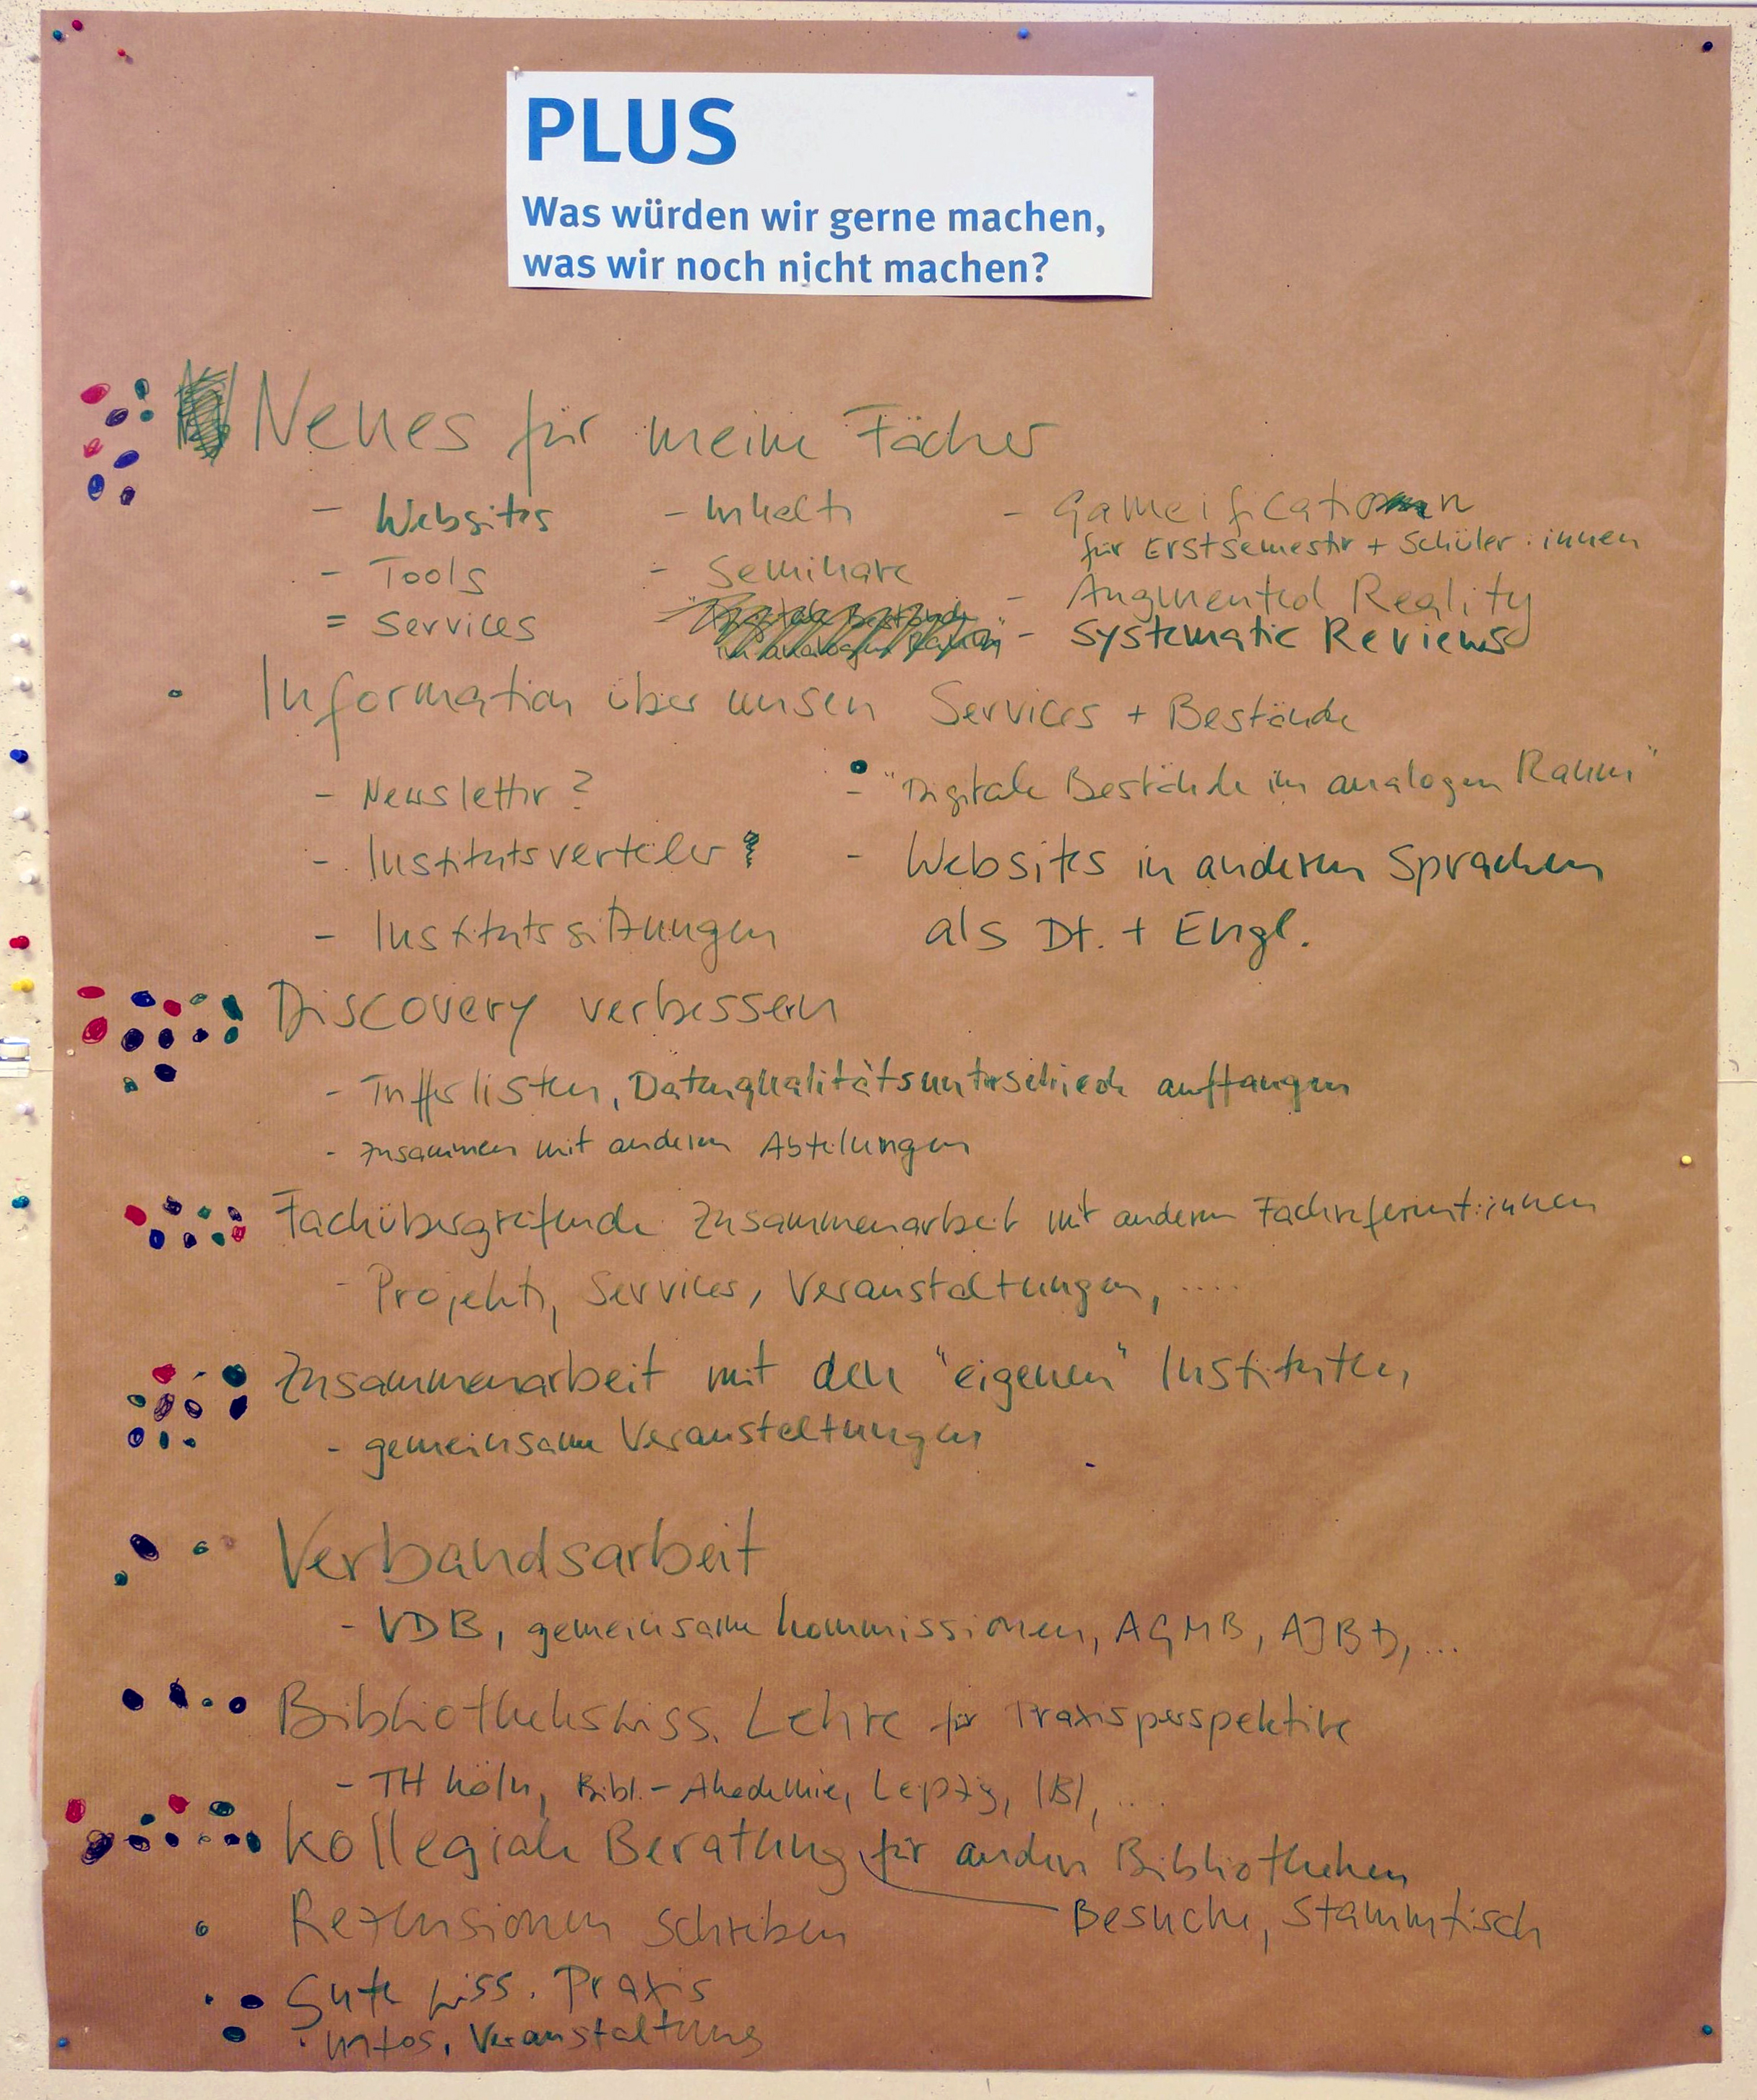 PLUS
Was würden wir gerne machen,
was wir noch nicht machen?
Neues für meine Fächer
- Websites
- Inhalte
- Gameification
für Erstsemester + Schüler:innen
- Tools
- Seminare
- Augmented Reality
= Services
- Systematic Reviews
Information über unsere Services + Bestände
- Newsletter?
- "Digitale Bestände im analogen Raum"
- Institutsverteiler
- Websites in anderen Sprachen
als Dt. + Engl.
- Institutssitzungen
Discovery verbessern
- Trefferlisten, Datenqualitätsunterschiede auffangen
- zusammen mit anderen Abteilungen
Fachübergreifende Zusammenarbeit mit anderen Fachreferent:innen
- Projekte, Services, Veranstaltungen, ....
Zusammenarbeit mit den "eigenen" Instituten
- gemeinsame Veranstaltungen
Verbandsarbeit
- VDB, gemeinsame Kommissionen, AGMB, AJBD, ...
Bibliothekswiss. Lehre für Praxisperspektive
- TH Köln, Bibl.-Akademie, Leipzig, IBI, ....
Kollegiale Beratung für andere Bibliotheken
Besuche, Stammtisch
Rezensionen schreiben
Gute wiss. Praxis
· Infos, Veranstaltung